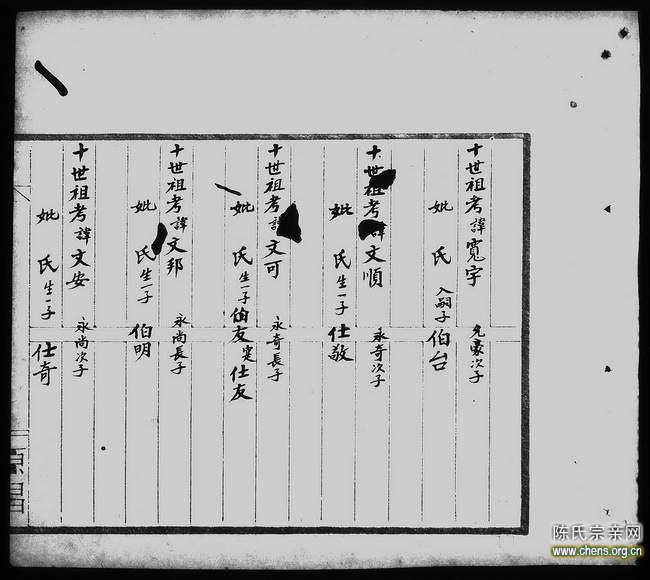 十世祖考諱寬宇 允豪次子
妣 氏 入嗣子伯台
十世祖考諱文順 永奇次子
妣 氏生一子 仕敬
十世祖考諱文可 永奇長子
妣 氏生一子伯友 仕友
十世祖考諱文邦 永尚長子
妣 氏生一子 伯明
十世祖考諱文安 永尚次子
妣 氏生一子 仕奇
源昌
陈氏宗亲网
www.chens.org.cn